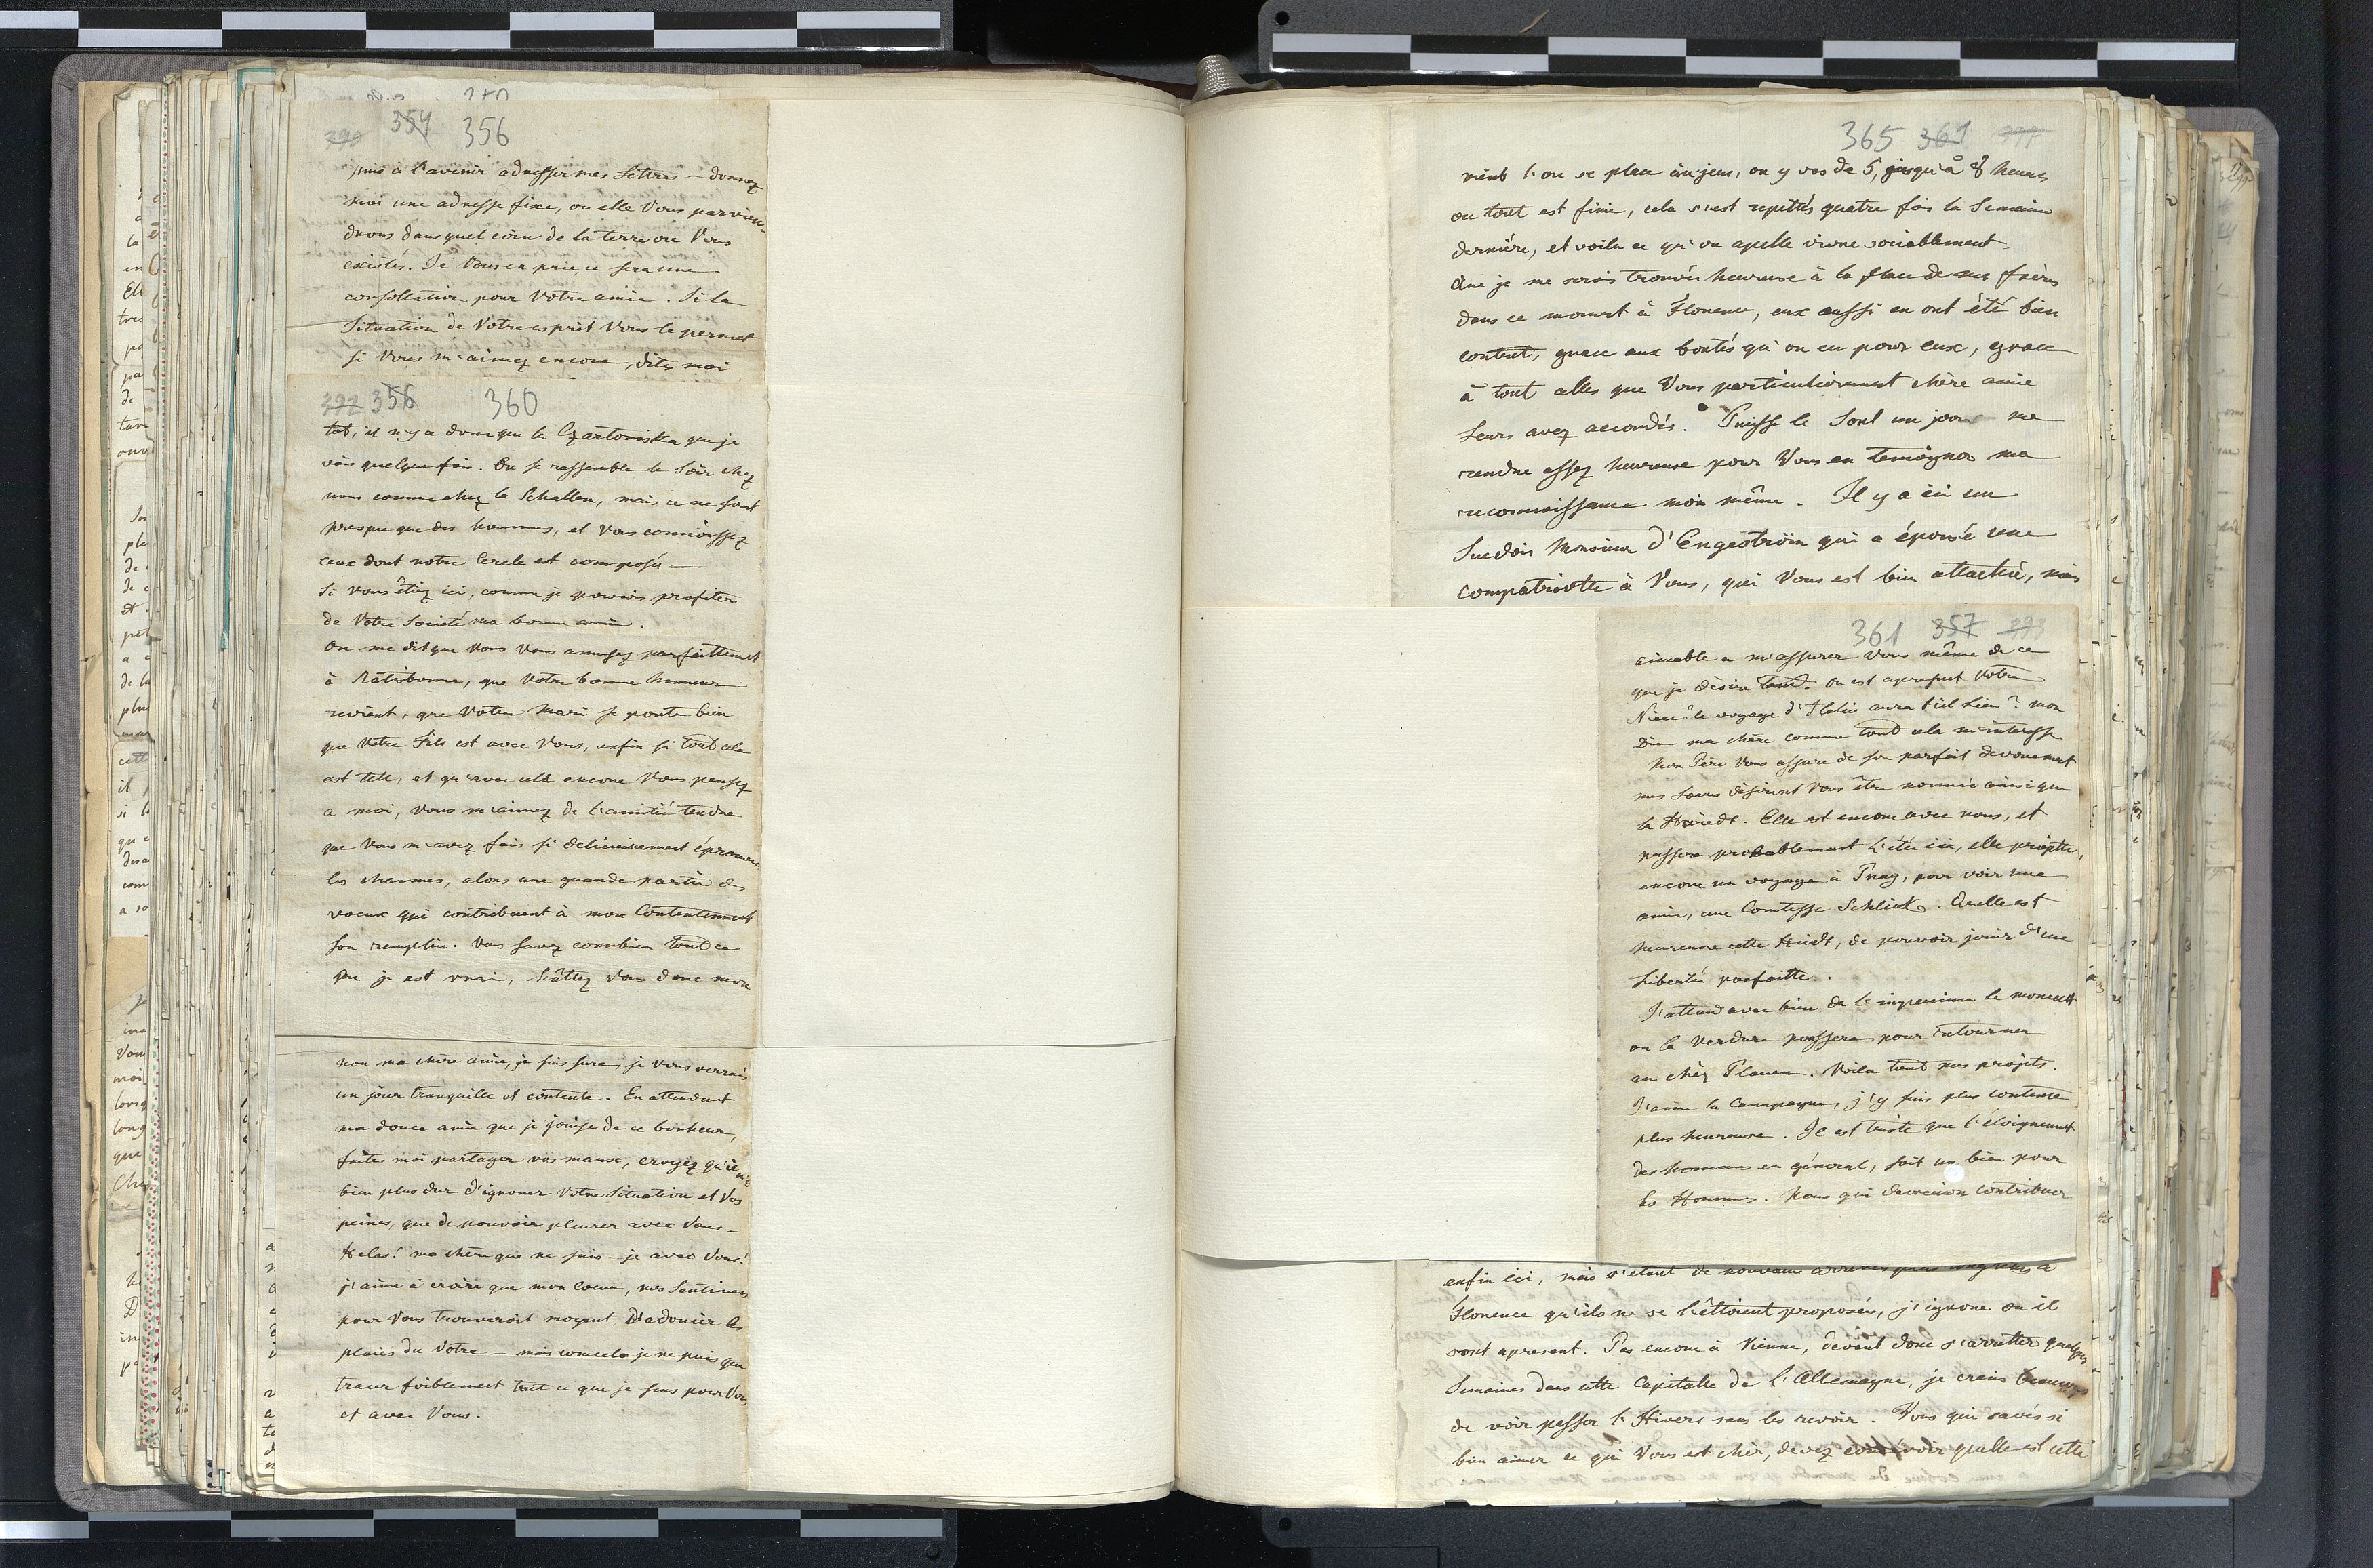 390 354 356
puis à l'avenir adresser mes Lettres — donnez
moi une adresse fixe, ou elle Vous parvien-
drons dans quel coin de la terre ou Vous
existés. Je Vous en prie, ce sera une
consollation pour Votre amie. Si la
Situation de Votre esprit Vous le permet
si Vous m'aimez encore, dites moi
392 356 360
tot, il n'y a donc que la Czartoriska que je
vois quelque fois. On se rassemble le Soir chez
nous comme chez la Schallen, mais ce ne sont
presque que des hommes, et vous connoissez
ceux dont notre Cercle est composé —
Si vous étiez ici, comme je pourrois profiter
de Votre Societé ma bonne amie.
On me dit que vous Vous amusez parfaittement
à Ratisbonne, que Votre bonne humeur
revient, que Votre Mari se porte bien
que Votre Fils est avec Vous, enfin si tout cela
est tele, et qu'avec cela encore Vous pensez
a moi, Vous m'aimez de l'amitié tendre
que Vous m'avez fais si delicieusement éprouver
les charmes, alors une grande partie des
voeux qui contribuent à mon Contentement
son remplie. Vous savez combien tout ce
que je est vrai, hâttez Vous donc mon
non ma chère amie, je suis sure, je Vous verrais
un jour tranquille et contente. En attendant
ma douce amie que je jouisse de ce bonheur,
faites moi partager vos maux, croyez qu'il m'est
bien plus dur d'ignorer Votre Situation et Vos
peines, que de pouvoir pleurer avec Vous —
Helas! ma chère que ne suis-je avec Vous!
j'aime à croire que mon Coeur, mes Sentimens
pour Vous trouveroit moyent D'adoucir les
plaies du Votre — mais comcela je ne puis que
tracer foiblement tout ce que je sens pour Vous
et avec Vous.
365 361
vient l'on se place au jeu, on y vos de 5, jusqu'à 8 heures
ou tout est finie, cela s'est repettés quatre fois la Semaine
dernière, et voila ce qu'on apelle vivre sociablement.
Que je me serois trouvée heureuse à la place de mes frères
dans ce moment à Florence, eux aussi en ont été bien
content, grace aux bontés qu'on eu pour eux, grace
à tout celles que Vous particulierement chère amie
Leurs avez accordés. Puisse le Sort un jour me
rendre assez heureuse pour Vous en temoigner ma
reconnoissance moi même. Il y a ici un
Suedois Monsieur d'Engeström qui a épousé une
compatriotte à Vous, qui Vous est bien attachée, mais
361 357 393
aimable a m'assurer Vous même de ce
que je désire tant. Ou est apresent Votre
Niece? le voyage d'Italie aura t'il Lieu? mon
Dieu ma chère comme tout cela m'interesse
Mon Père Vous assure de son parfait devouement
mes Soeurs désirent Vous être nommée ainsi que
la . Elle est encore avec nous, et
passera probablement L'été ici, elle projette,
encore un voyage à Prag, pour voir une
amie, une Comtesse Schlick. Quelle est
heureuse cette , de pouvoir jouir d'une
Liberté parfaitte.
J'attend avec bien de l' le moment
ou la Verdure poussera pour retourner
au chèr Plauen. Voila tout mes projets.
J'aime la Campagne, j'y suis plus contente
plus heureuse. Il est triste que l'éloignement
des hommes en géneral, soit un bien pour
les Hommes. Nous qui devrions Contribuer
enfin ici, mais s'etant de nouveau arretés plus longtems à
Florence qu'ils ne se l'éttoient proposés, j'ignore ou il
sont apresent. Pas encore à Vienne, devant donc s'arretter quelques
Semaines dans cette Capitalle de l'Allemagne, je crains beaucoup
de voir passer l'Hivers sans les revoir. Vous qui savés si
bien aimer ce qui Vous est chèr, devez concevoir quelle est cette